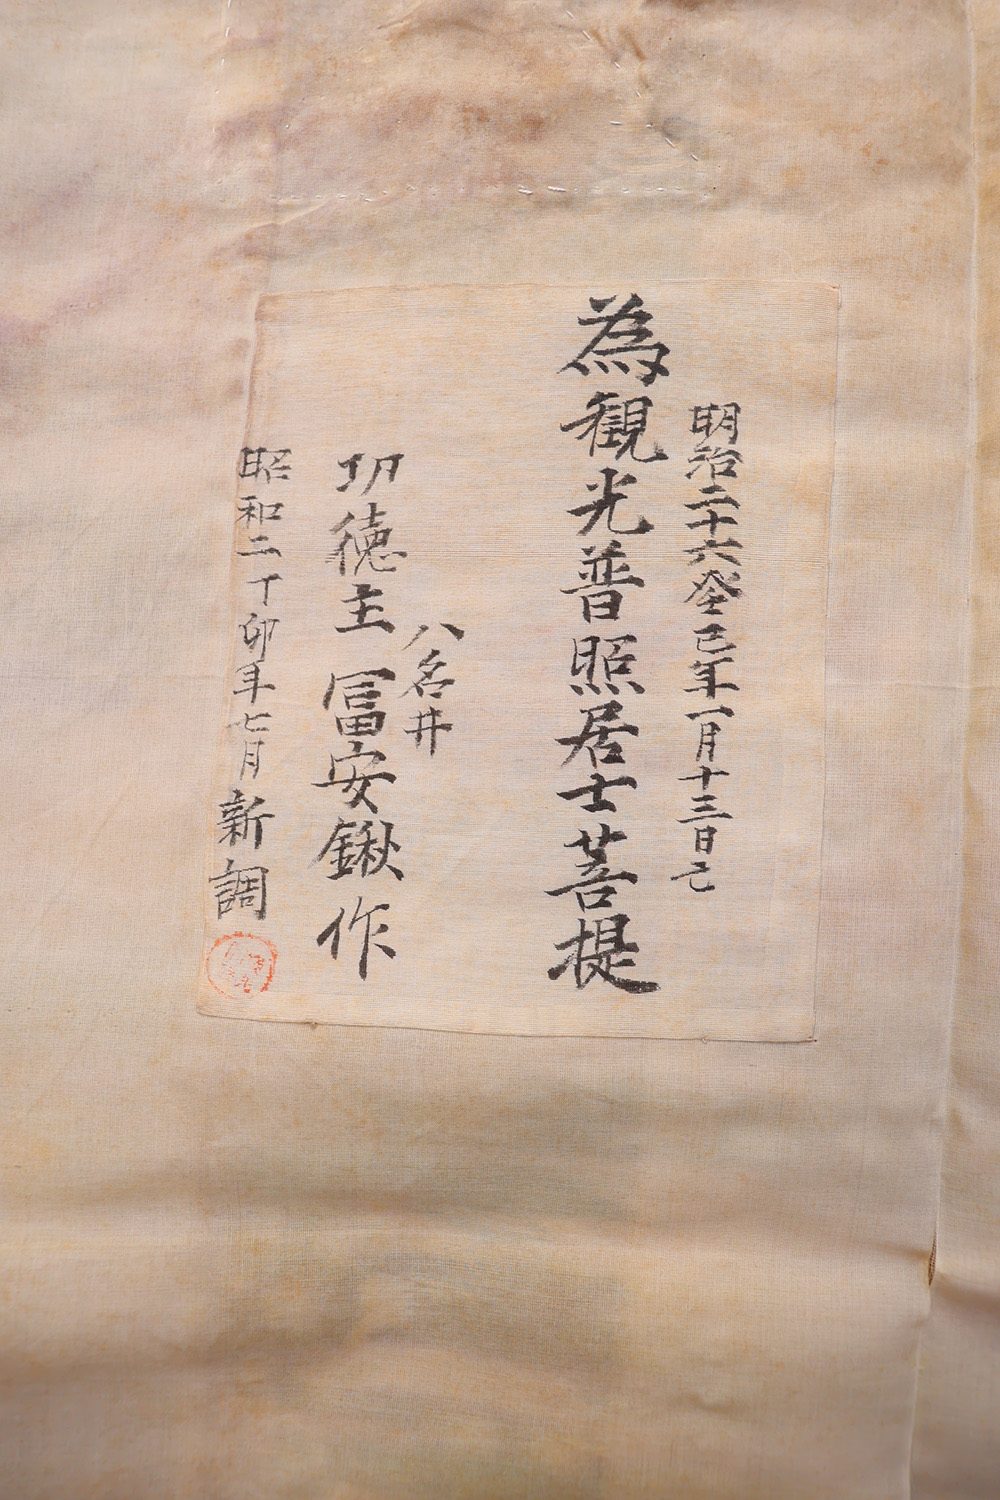 明治二十六癸巳年一月十三日已
為観光普照居士菩提
八名井
功徳主 冨安鍬作
昭和二丁卯年七月新調